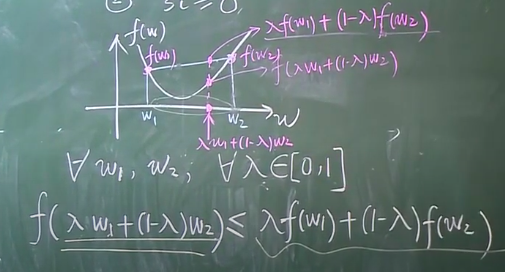 ② si≥0,
f(w)
λf(w₁)+(1-λ)f(w₂)
f(w₁)
f(w₂)
f(λw₁+(1-λ)w₂)
w₁
w₂
w
λw₁+(1-λ)w₂
∀w₁, w₂, ∀λ∈[0,1]
f(λw₁+(1-λ)w₂)≤λf(w₁)+(1-λ)f(w₂)